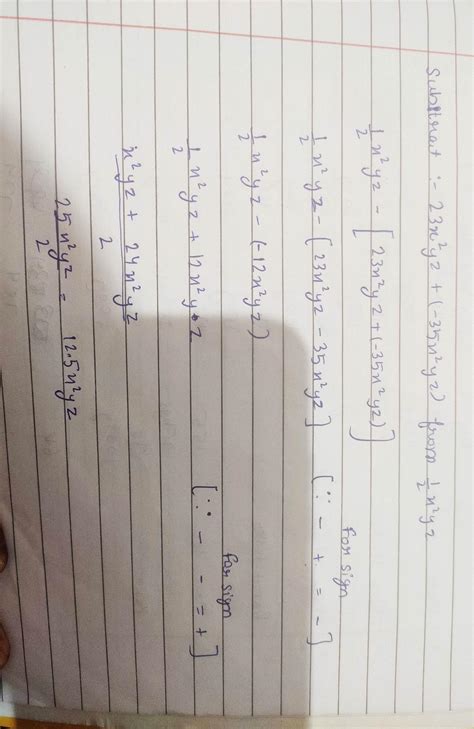 Subtract :- 23x²yz + (-35x²yz) from 1/2 x²yz
1/2 x²yz - [23x²yz + (-35x²yz)]
1/2 x²yz - [23x²yz - 35x²yz] [∵ - + = -] for sign
1/2 x²yz - (-12x²yz)
1/2 x²yz + 12x²y•z [∵ - - = +] for sign
x²yz + 24x²yz / 2
25x²yz / 2 = 12.5x²yz